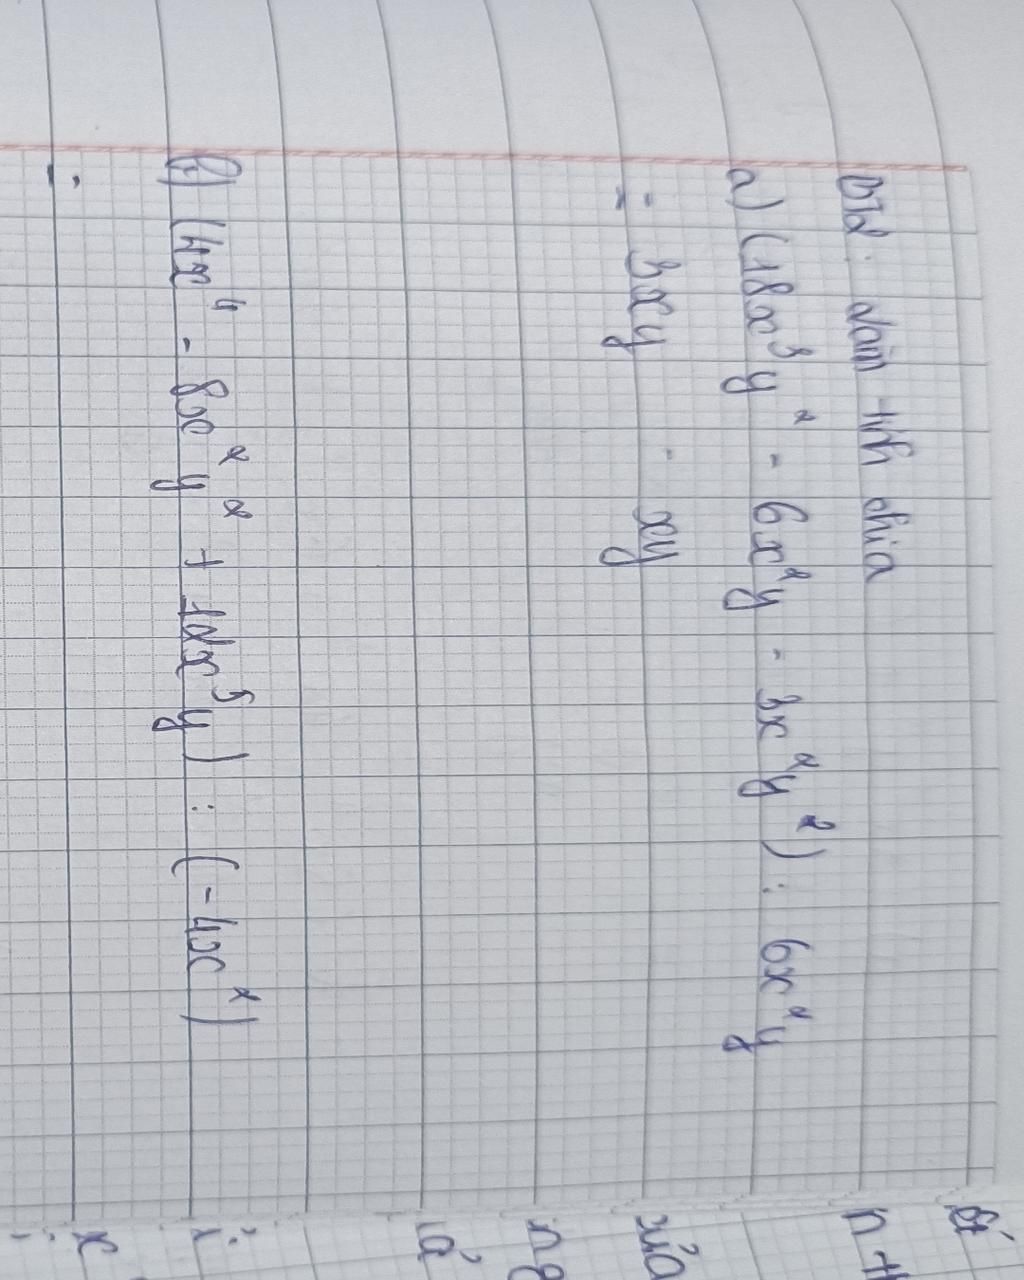 BT2: Làm tính chia
a) (18x³y² - 6x²y - 3x²y²) : 6x²y
= 3xy - xy
b) (4x⁴ - 8x²y² + 12x⁵y) : (-4x²)